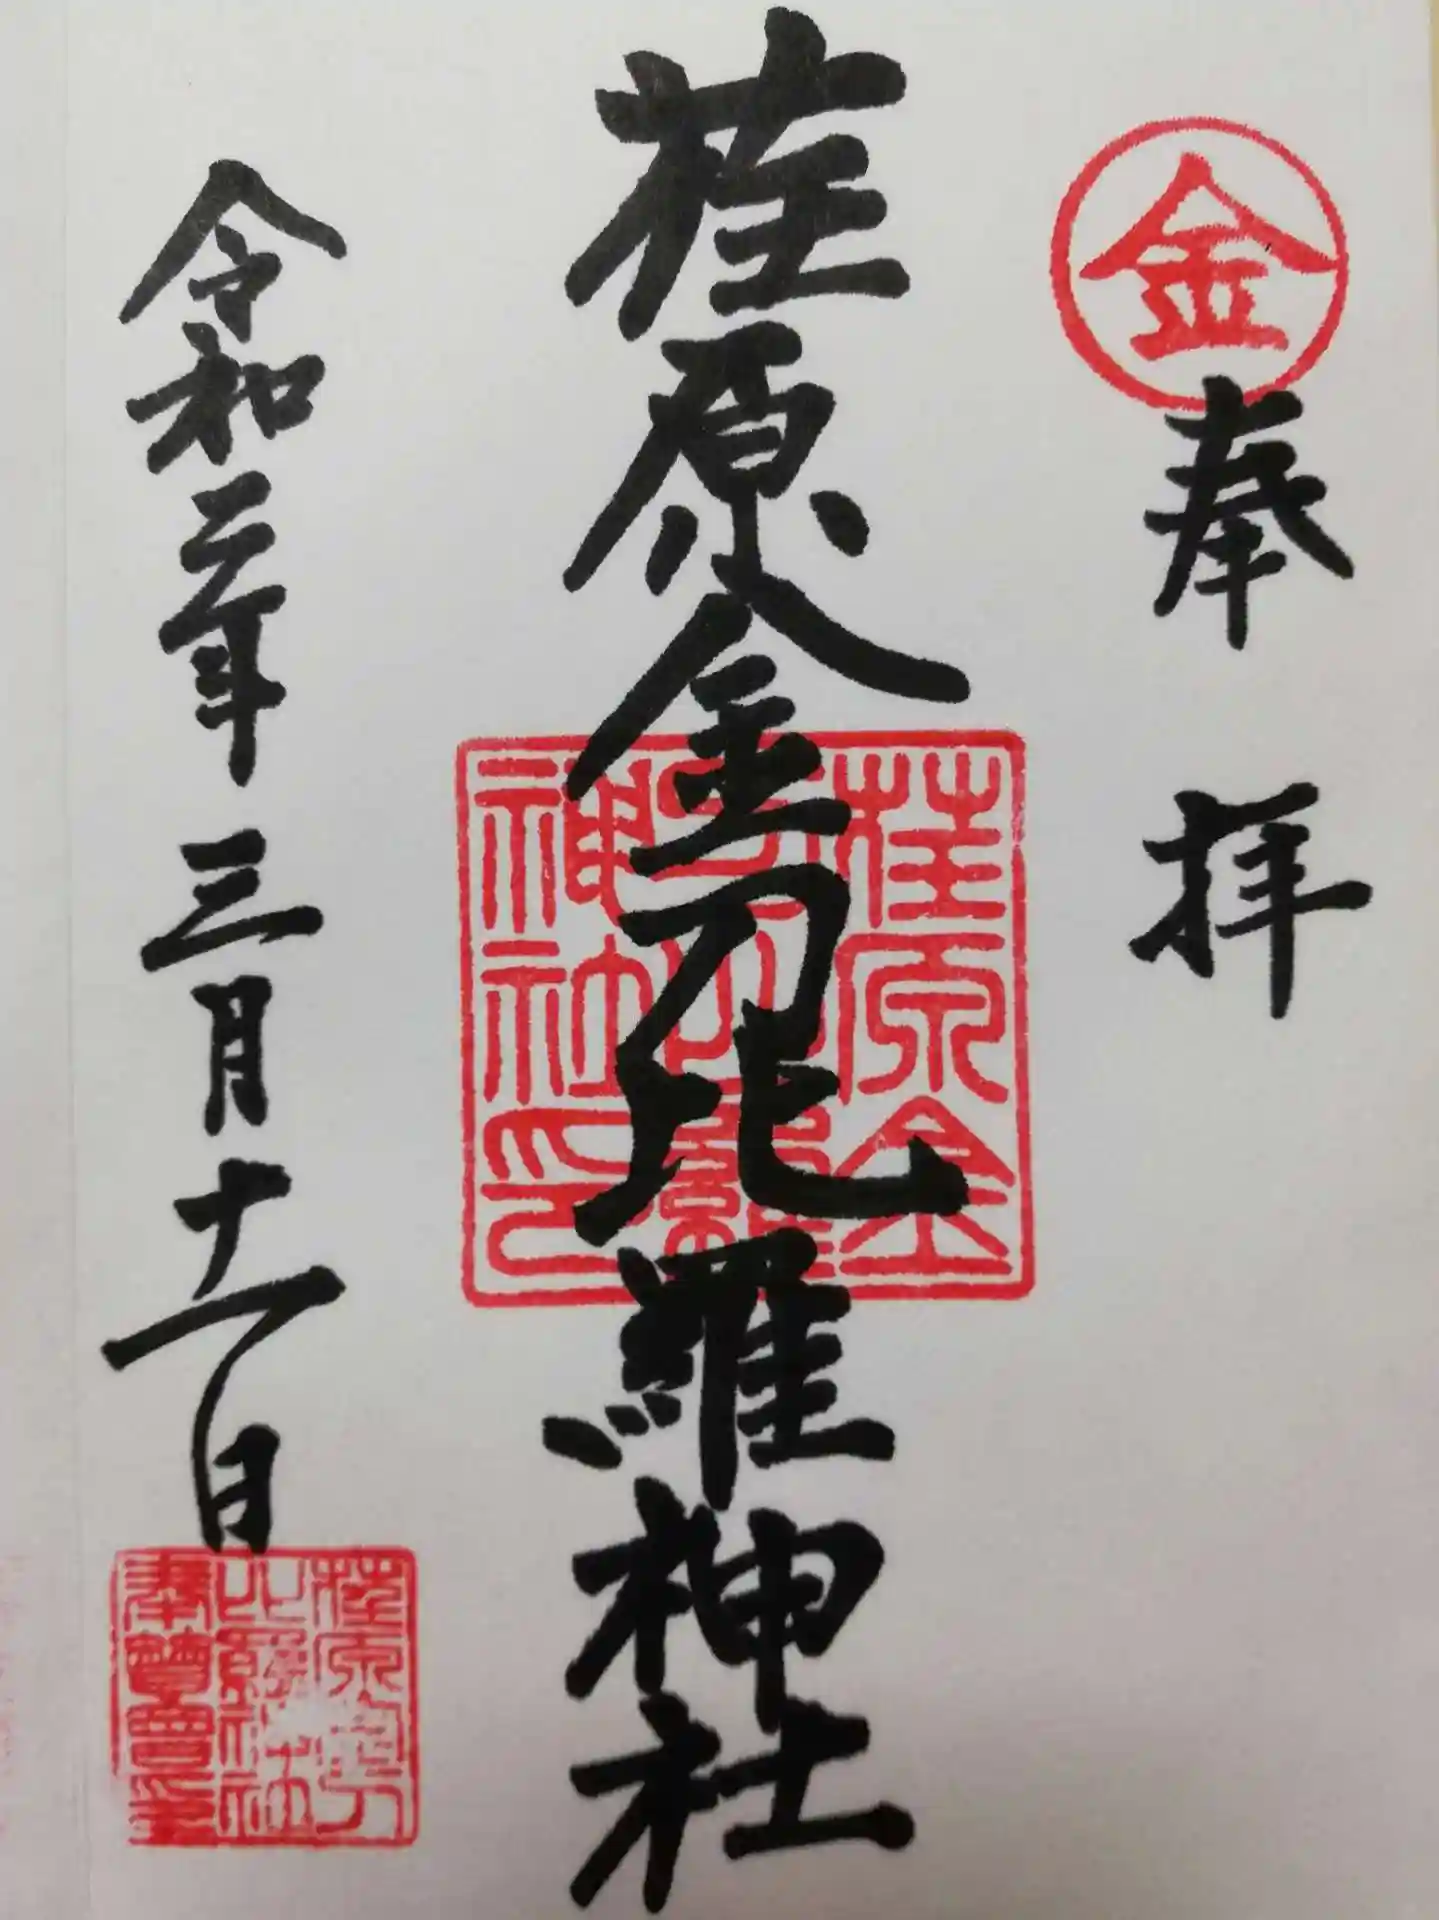 金
奉拝
荏原金刀比羅神社
荏原金
刀比羅
神社印
令和二年三月十一日
荏原金刀
比羅神社